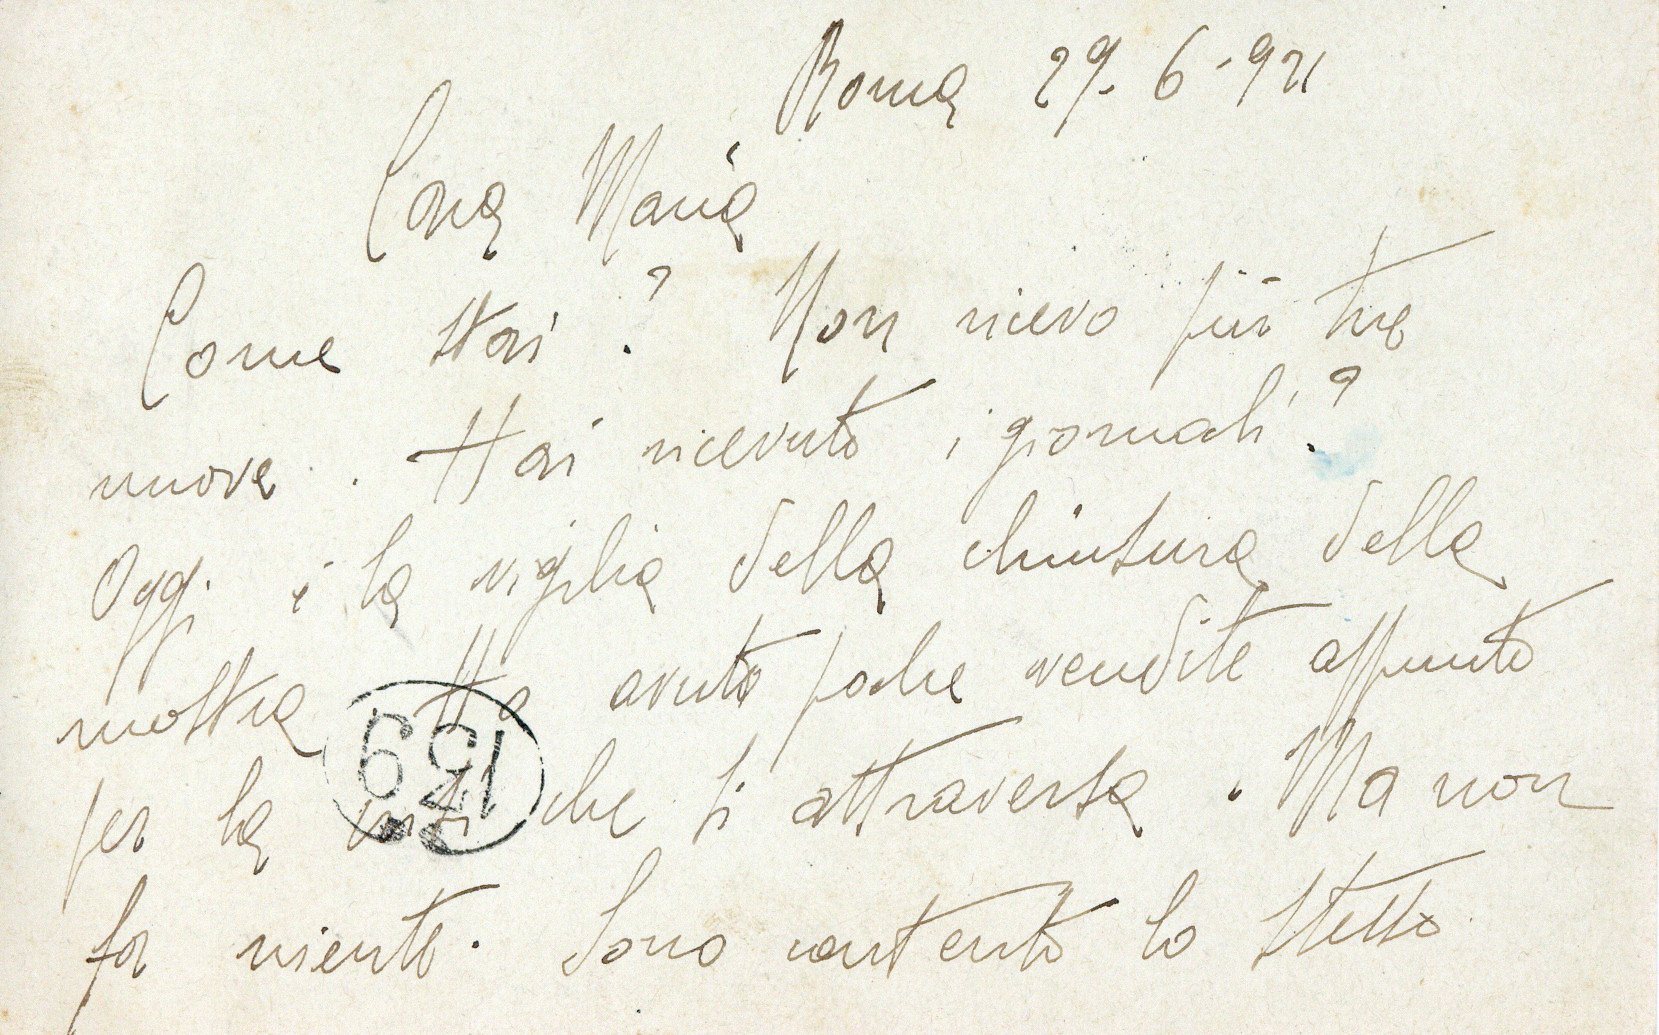 Roma 29-6-921
Cara Maria
Come stai? Non ricevo più tue
nuove. Hai ricevuto i giornali?
Oggi è la vigilia della chiusura della
mostra. Ho avuto poche vendite appunto
per la crisi che si attraversa. Ma non
fa niente. Sono contento lo stesso
139